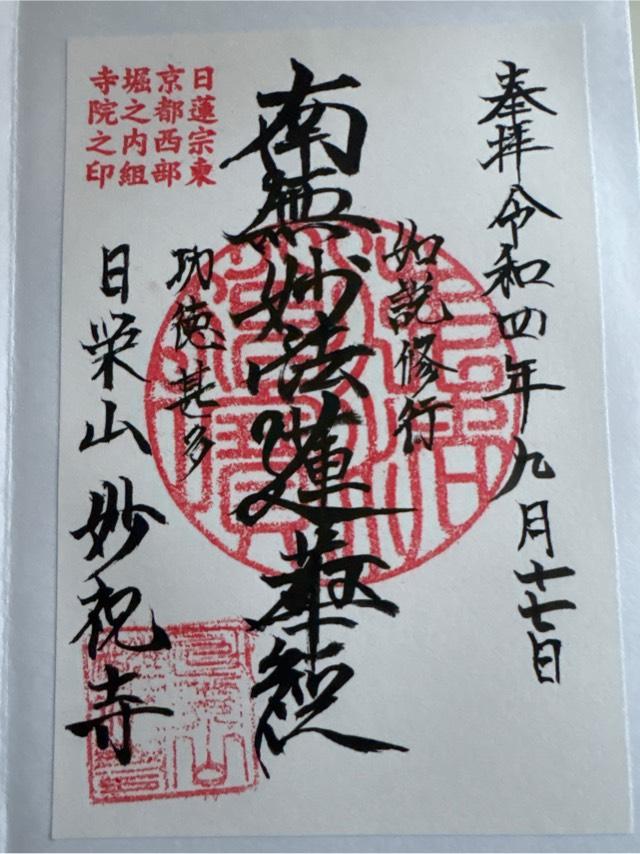 奉拝令和四年九月十七日
如説修行
南無妙法蓮華経
功徳甚多
日蓮宗東
京都西部
堀之内組
寺院之印
日栄山妙祝寺